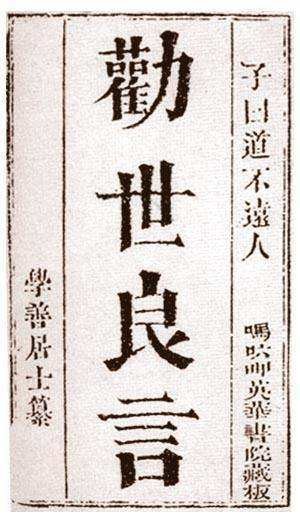 子曰道不遠人
嗎㕷呷英華書院藏板
勸世良言
學善居士纂